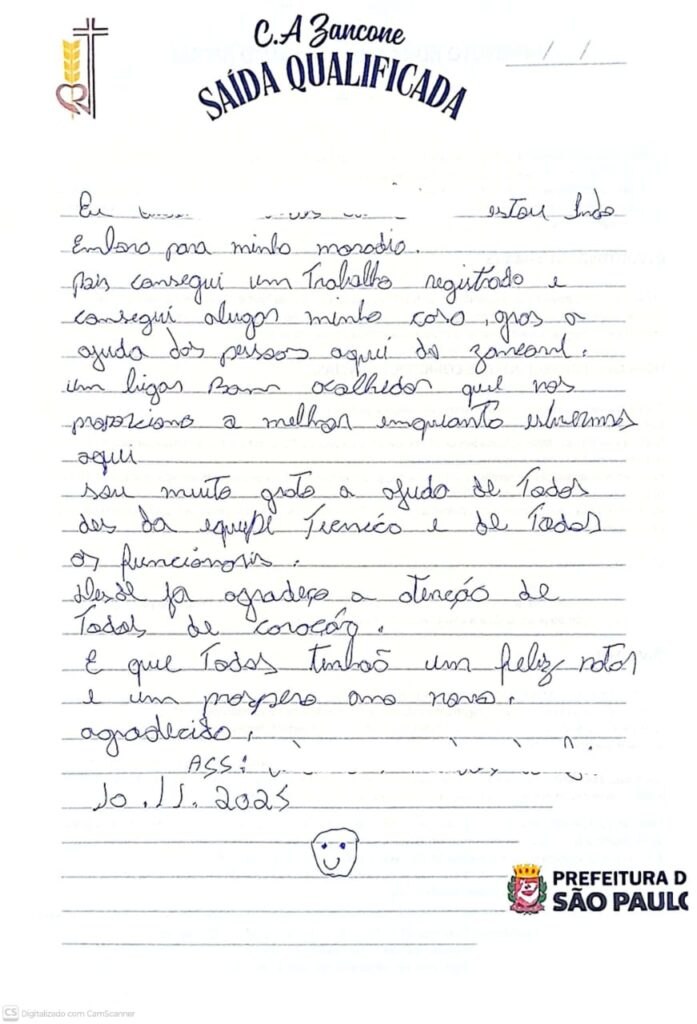 C.A Zancone
SAÍDA QUALIFICADA
/ /
Eu estou Indo
Embora para minha moradia.
pois consegui um Trabalho registrado e
consegui alugar minha casa, gras a
ajuda das pessoas aqui do zanconi.
um lugar Bom acalhedor quel nos
proporciono a melhor enquanto estivermos
aqui
sou muito grato a ajuda de Todos
des da equipe Tecnico e de Todos
os funcionaris.
desde ja agradeço a atenção de
Todos de coração.
E que Todos tenhaõ um feliz natal
e um prospero ano novo.
agradecido.
ASS:
10.11.2025
PREFEITURA D
SÃO PAULO
CS Digitalizado com CamScanner